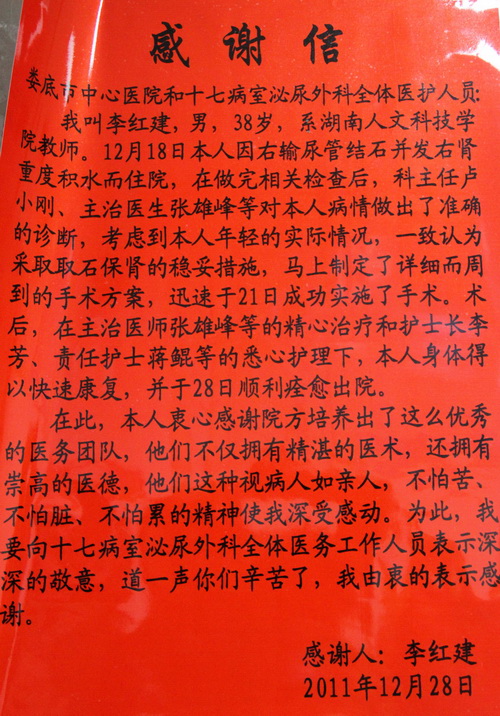 感谢信
娄底市中心医院和十七病室泌尿外科全体医护人员:
我叫李红建，男，38岁，系湖南人文科技学
院教师。12月18日本人因右输尿管结石并发右肾
重度积水而住院，在做完相关检查后，科主任卢
小刚、主治医生张雄峰等对本人病情做出了准确
的诊断，考虑到本人年轻的实际情况，一致认为
采取取石保肾的稳妥措施，马上制定了详细而周
到的手术方案，迅速于21日成功实施了手术。术
后，在主治医师张雄峰等的精心治疗和护士长李
芳、责任护士蒋鲲等的悉心护理下，本人身体得
以快速康复，并于28日顺利痊愈出院。
在此，本人衷心感谢院方培养出了这么优秀
的医务团队，他们不仅拥有精湛的医术，还拥有
崇高的医德，他们这种视病人如亲人，不怕苦、
不怕脏、不怕累的精神使我深受感动。为此，我
要向十七病室泌尿外科全体医务工作人员表示深
深的敬意，道一声你们辛苦了，我由衷的表示感
谢。
感谢人：李红建
2011年12月28日